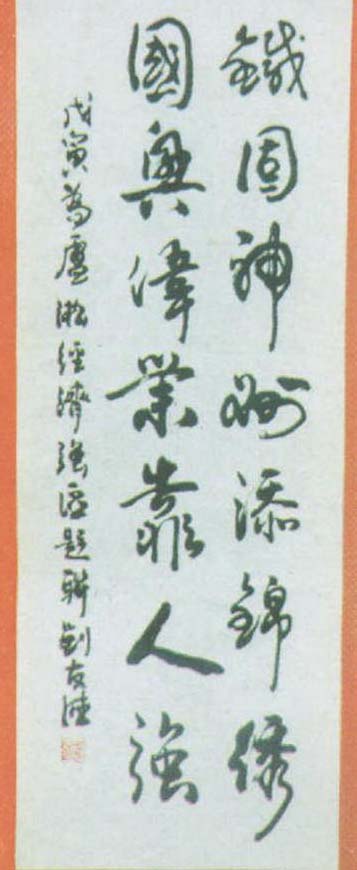 鐵固神州添錦繡
國興偉業靠人強
戊寅為盧淞經濟強區題聯 劉友